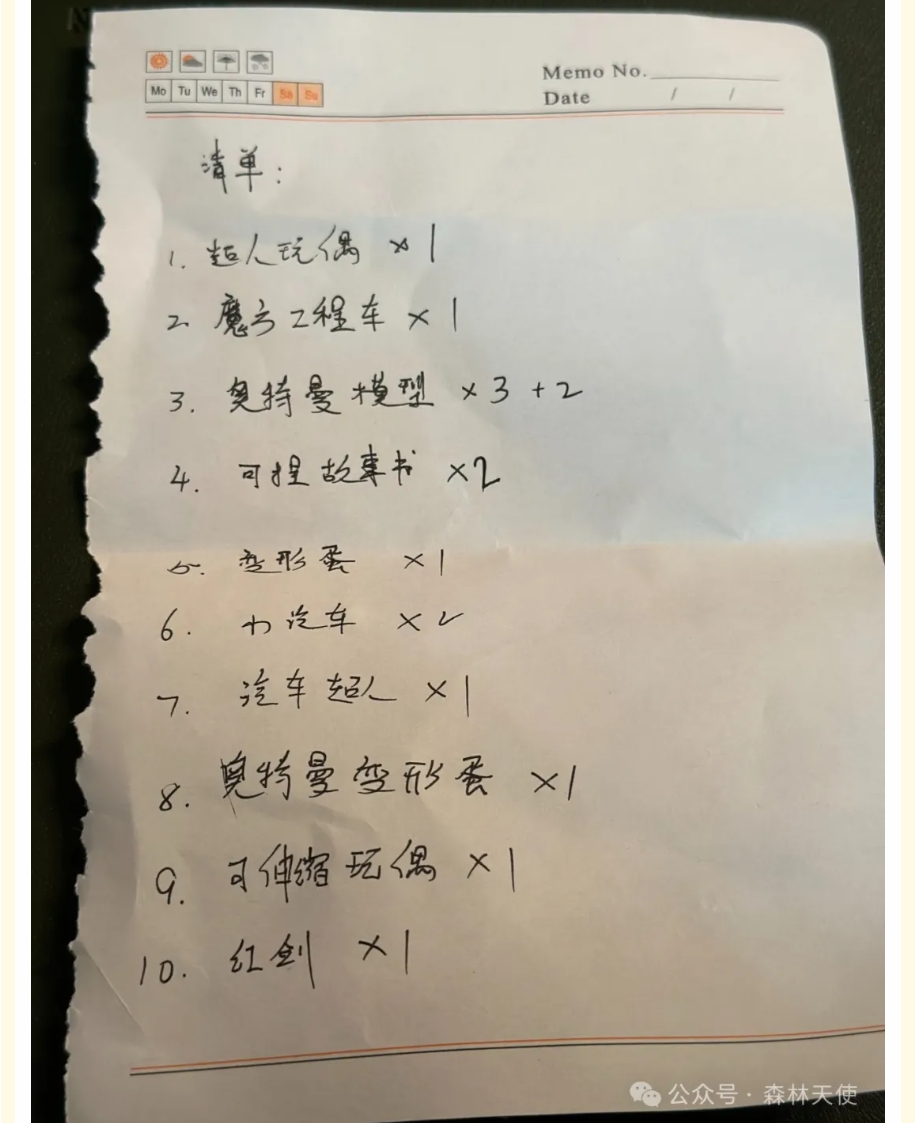 Memo No.
Mo Tu We Th Fr Sa Su
Date / /
清单：
1. 超人玩偶 ×1
2. 魔方工程车 ×1
3. 奥特曼模型 ×3+2
4. 可捏故事书 ×2
5. 变形蛋 ×1
6. 小汽车 ×2
7. 汽车超人 ×1
8. 奥特曼变形蛋 ×1
9. 可伸缩玩偶 ×1
10. 红剑 ×1
公众号·森林天使